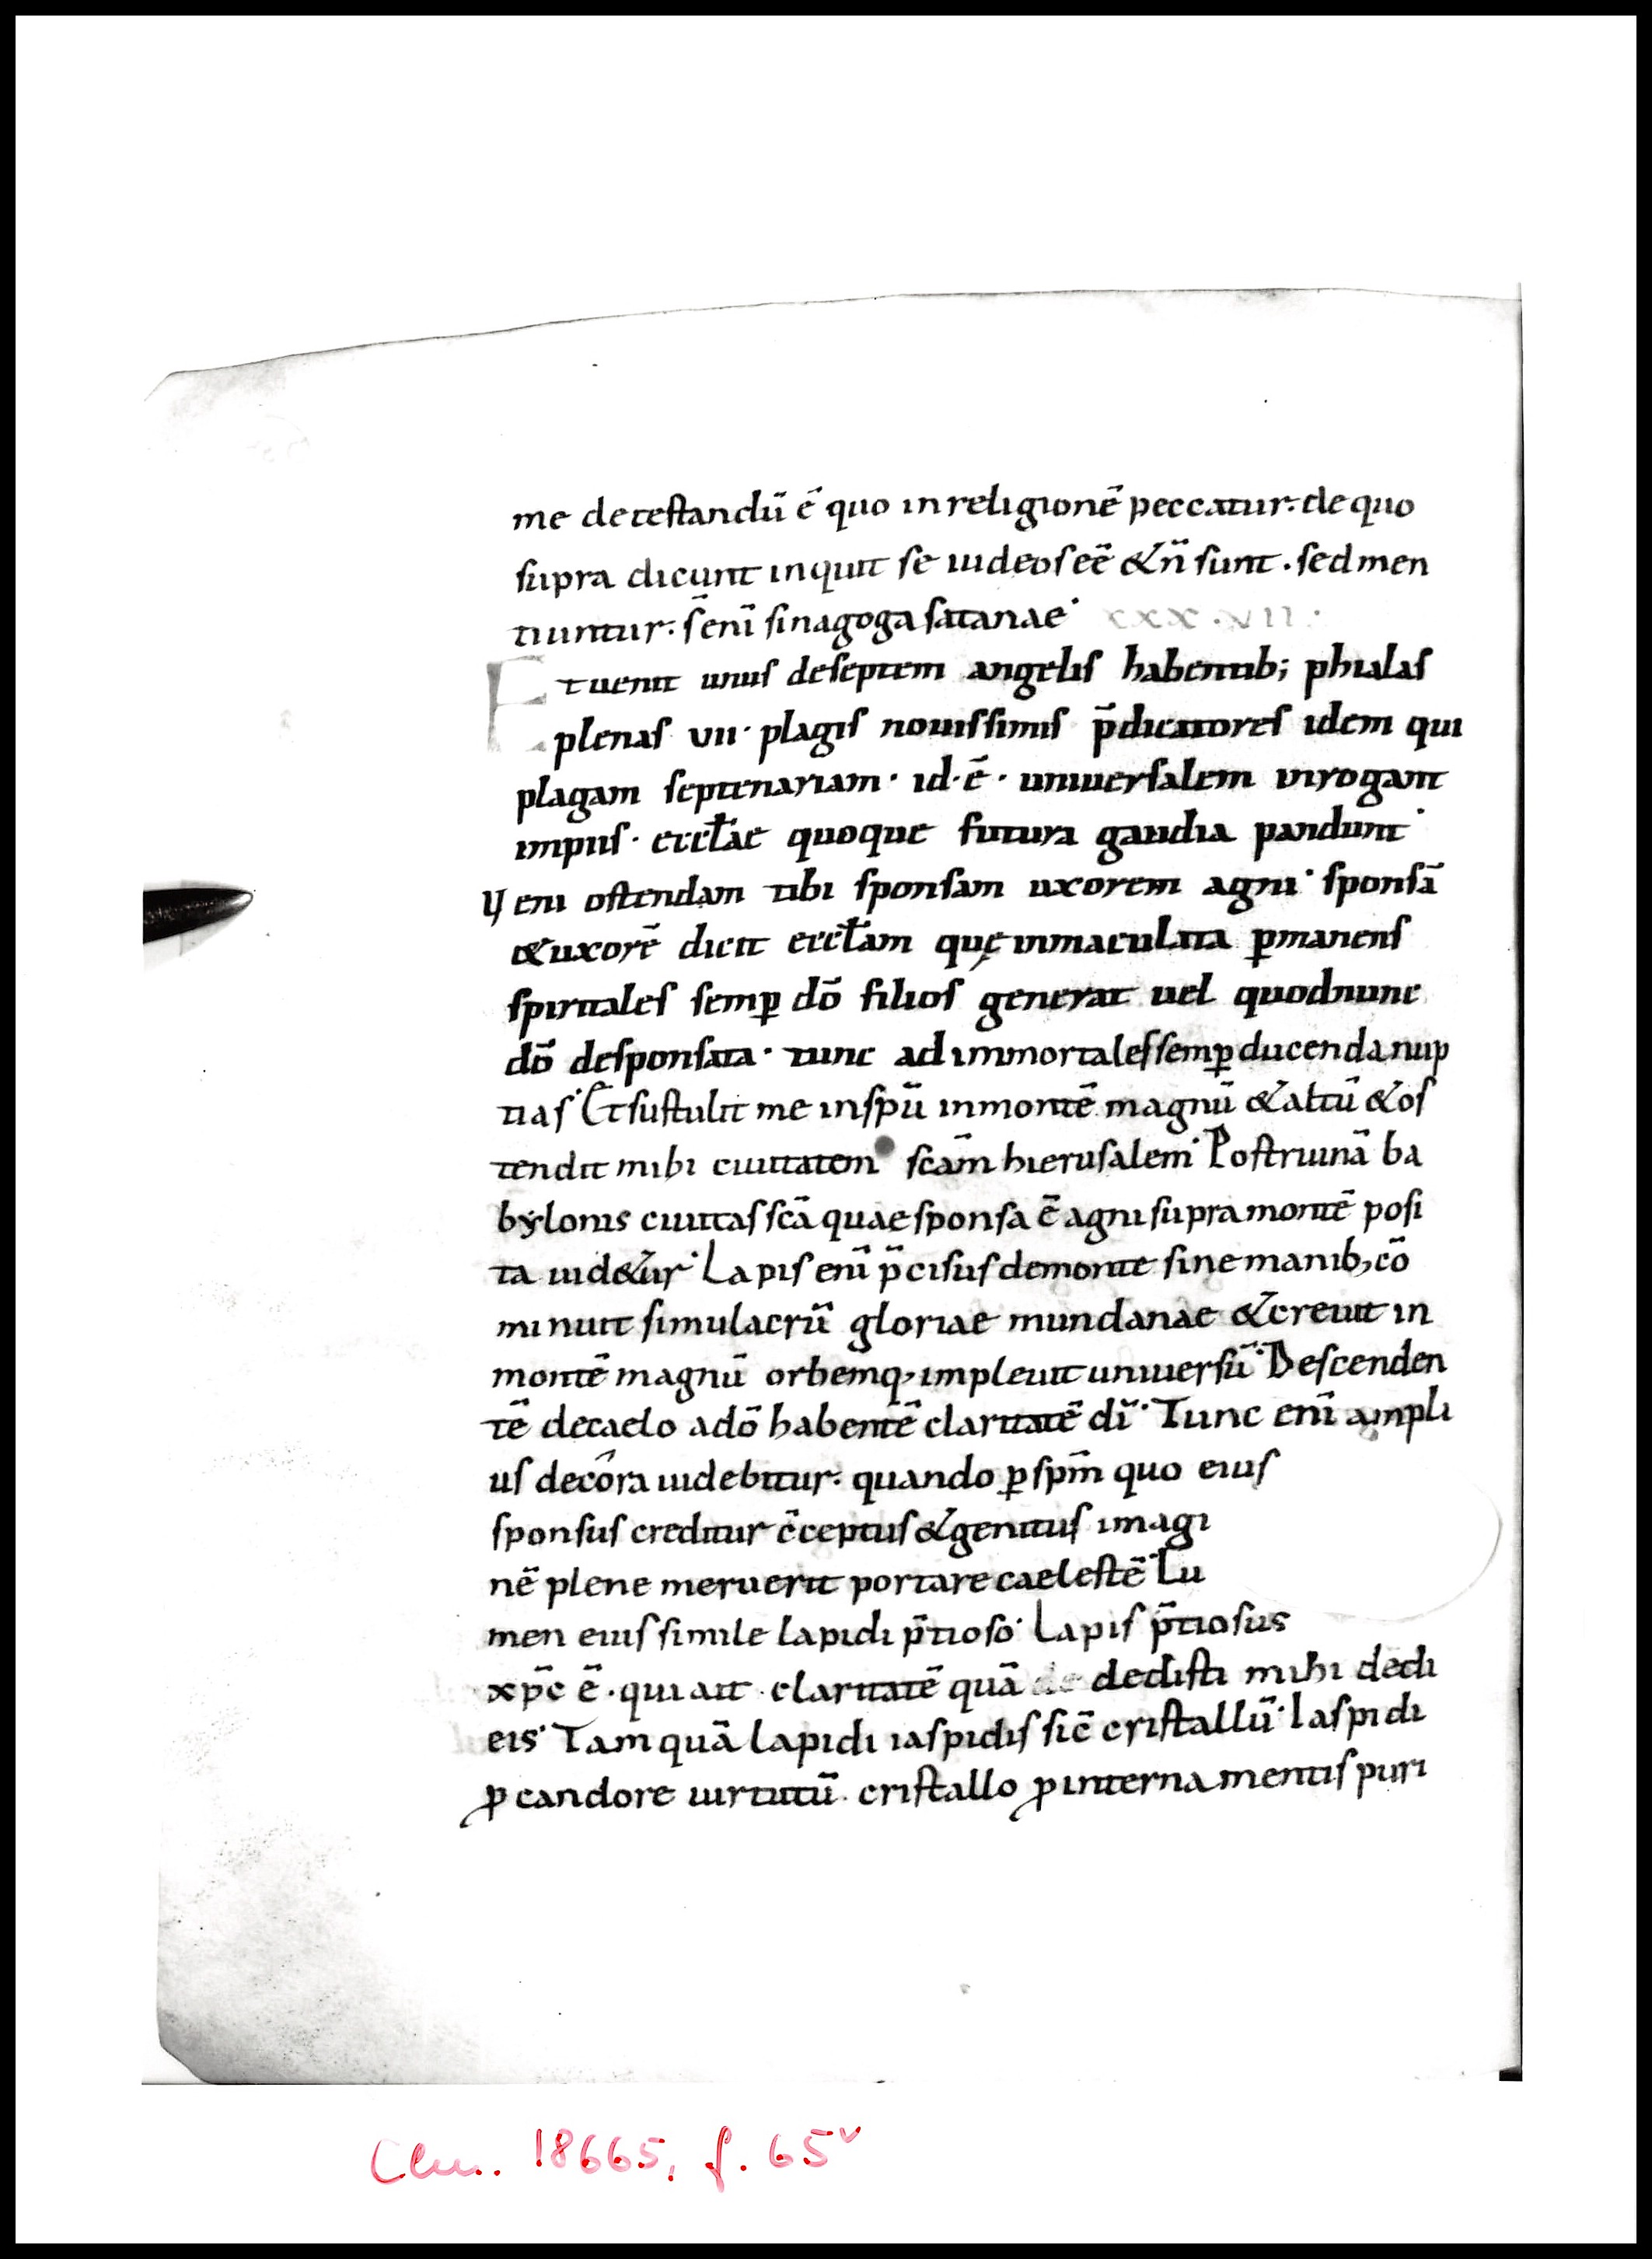 me detestandū ē quo inreligionē peccatur. de quo
supra dicunt inquit se iudeos eē & n̄ sunt. sed men
tiuntur. s̄ enī sinagoga satanae. xxx.vii.
Et uenit unus de septem angelis habentib; phialas
plenas vii. plagis nouissimis p̄dicatores idem qui
plagam septenariam. id. ē. uniuersalem inrogant
impiis. eccłae quoque futura gaudia pandunt.
Veni ostendam tibi sponsam uxorem agni. sponsā
& uxorē dicit eccłam quę inmaculata ꝑmanens
spiritales semꝑ dō filios generat uel quodnunc
dō desponsata. tunc ad immortales semꝑ ducenda nup
tias. Et sustulit me in spū in montē magnū & altū & os
tendit mihi ciuitatem scām hierusalem. Post ruinā ba
bylonis ciuitas scā quae sponsa ē agni supra montē posi
ta uid&ur. Lapis enī p̄cisus de monte sine manib, cō
minuit simulacrū gloriae mundanae & creuit in
montē magnū orbemq, impleuit uniuersū. Descenden
tē de caelo a dō habentē claritatē dī. Tunc enī ampli
us decora uidebitur. quando ꝑ spm̄ quo eius
sponsus creditur c̄ceptus & genitus imagi
nē plene meruerit portare caelestē. Lu
men eius simile lapidi p̄tioso. Lapis p̄tiosus
xp̄c ē. qui ait claritatē quā de dedisti mihi dedi
eis. Tamquā lapidi iaspidis sic̄ cristallū. Iaspidi
ꝓ candore uirtutū. cristallo ꝓ interna mentis puri
Clm. 18665, f. 65v